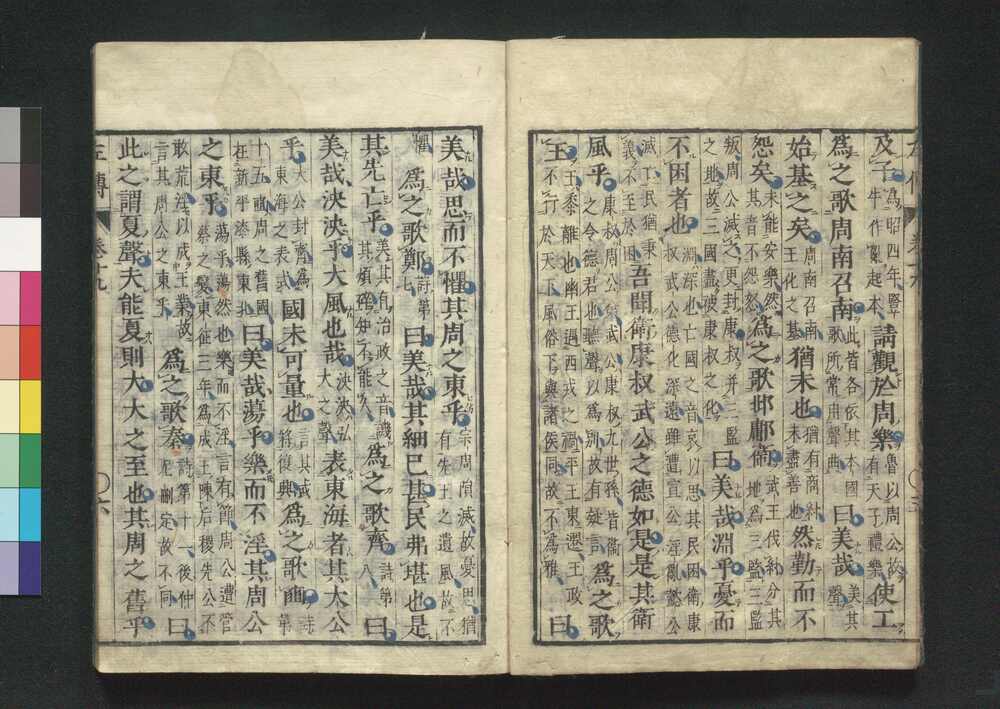 及子為昭四年豎牛作亂起本請觀於周樂魯以周公故有天子禮樂使工
爲之歌周南召南此皆各依其本國歌所常用聲曲曰美哉美其聲
始基之矣周南召南王化之基猶未也猶有商紂未盡善也然勤而不
怨矣未能安樂然其音不怨怒爲之歌邶鄘衛武王伐紂分其地為三監三監
叛周公滅之更封康叔并三監之地故三國盡被康叔之化曰美哉淵乎憂而
不困者也淵深也亡國之音哀以思其民困衛康叔武公德化深遠雖遭宣公淫亂懿公
滅亡民猶秉義不至於困吾聞衛康叔武公之德如是是其衛
風乎康叔周公弟武公康叔九世孫皆衛之令德君也聽聲以為別故有疑言爲之歌
王王黍離也幽王遇西戎之禍平王東遷王政不行於天下風俗下與諸侯同故不為雅曰
美哉思而不懼其周之東乎宗周隕滅故憂思猶有先王之遺風故不
懼爲之歌鄭詩第七曰美哉其細已甚民弗堪也是
其先亡乎美其有治政之音譏其煩碎知不能久爲之歌齊詩第八曰
美哉泱泱乎大風也哉泱泱弘大之聲表東海者其大公
乎大公封齊為東海之表式國未可量也言其或將復興爲之歌豳詩第
十五豳周之舊國在新平漆縣東北曰美哉蕩乎樂而不淫其周公
之東乎蕩乎蕩然也樂而不淫言有節周公遭管蔡之變東征三年為成王陳后稷先公不
敢荒淫以成王業故言其周公之東乎爲之歌秦詩第十一後仲尼刪定故不同曰
此之謂夏聲夫能夏則大大之至也其周之舊乎
左傳 卷十九 六